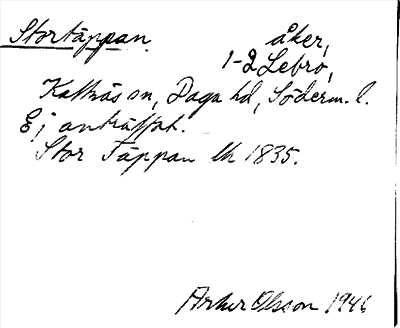 Stortäppan. åker,
1-2 Lebro,
Kattnäs sn, Daga hd, Söderm. l.
Ej anträffat.
Stor Täppan lh 1835.
Arthur Olsson 1946